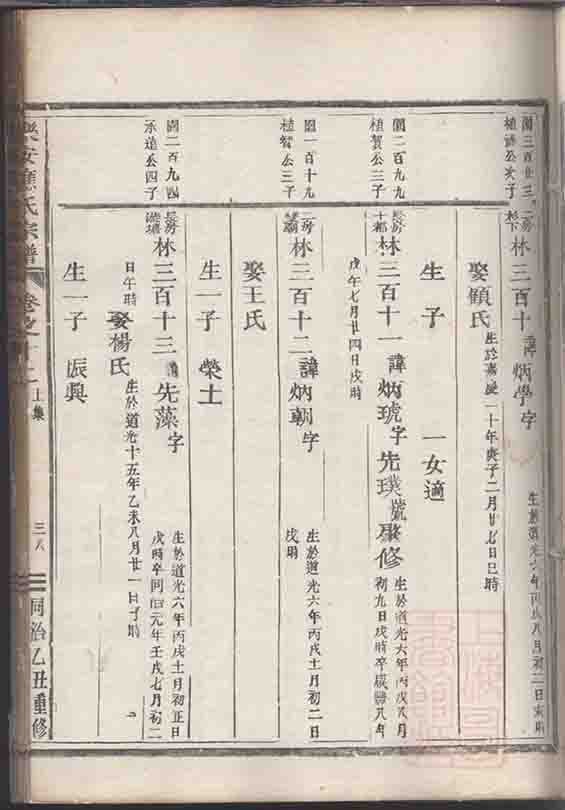 圖三百廿三
植諸公次子
二房
杉下
林三百十 諱炳學字
生於道光六年丙戌八月初二日亥時
娶顧氏
生於嘉慶二十年庚子二月廿七日巳時
生子 一女適
圖二百九九
植賀公三子
長房
十都
林三百十一 諱炳琥字先璞號聚修
生於道光六年丙戌八月
初九日戌時卒咸豐八年
戊午七月廿四日戌時
圖一百十九
植智公三子
二房
林三百十二 諱炳朝字
生於道光六年丙戌十一月初二日
戌時
娶王氏
生一子 榮土
圖二百九四
承達公四子
長房
林三百十三 諱先藻字
生於道光六年丙戌十一月初五日
戌時卒同治元年壬戌七月初二
日午時
娶楊氏
生於道光十五年乙未八月廿一日子時
生一子 振興
樂安應氏宗譜
卷之十二
上集
三八
同治乙丑重修